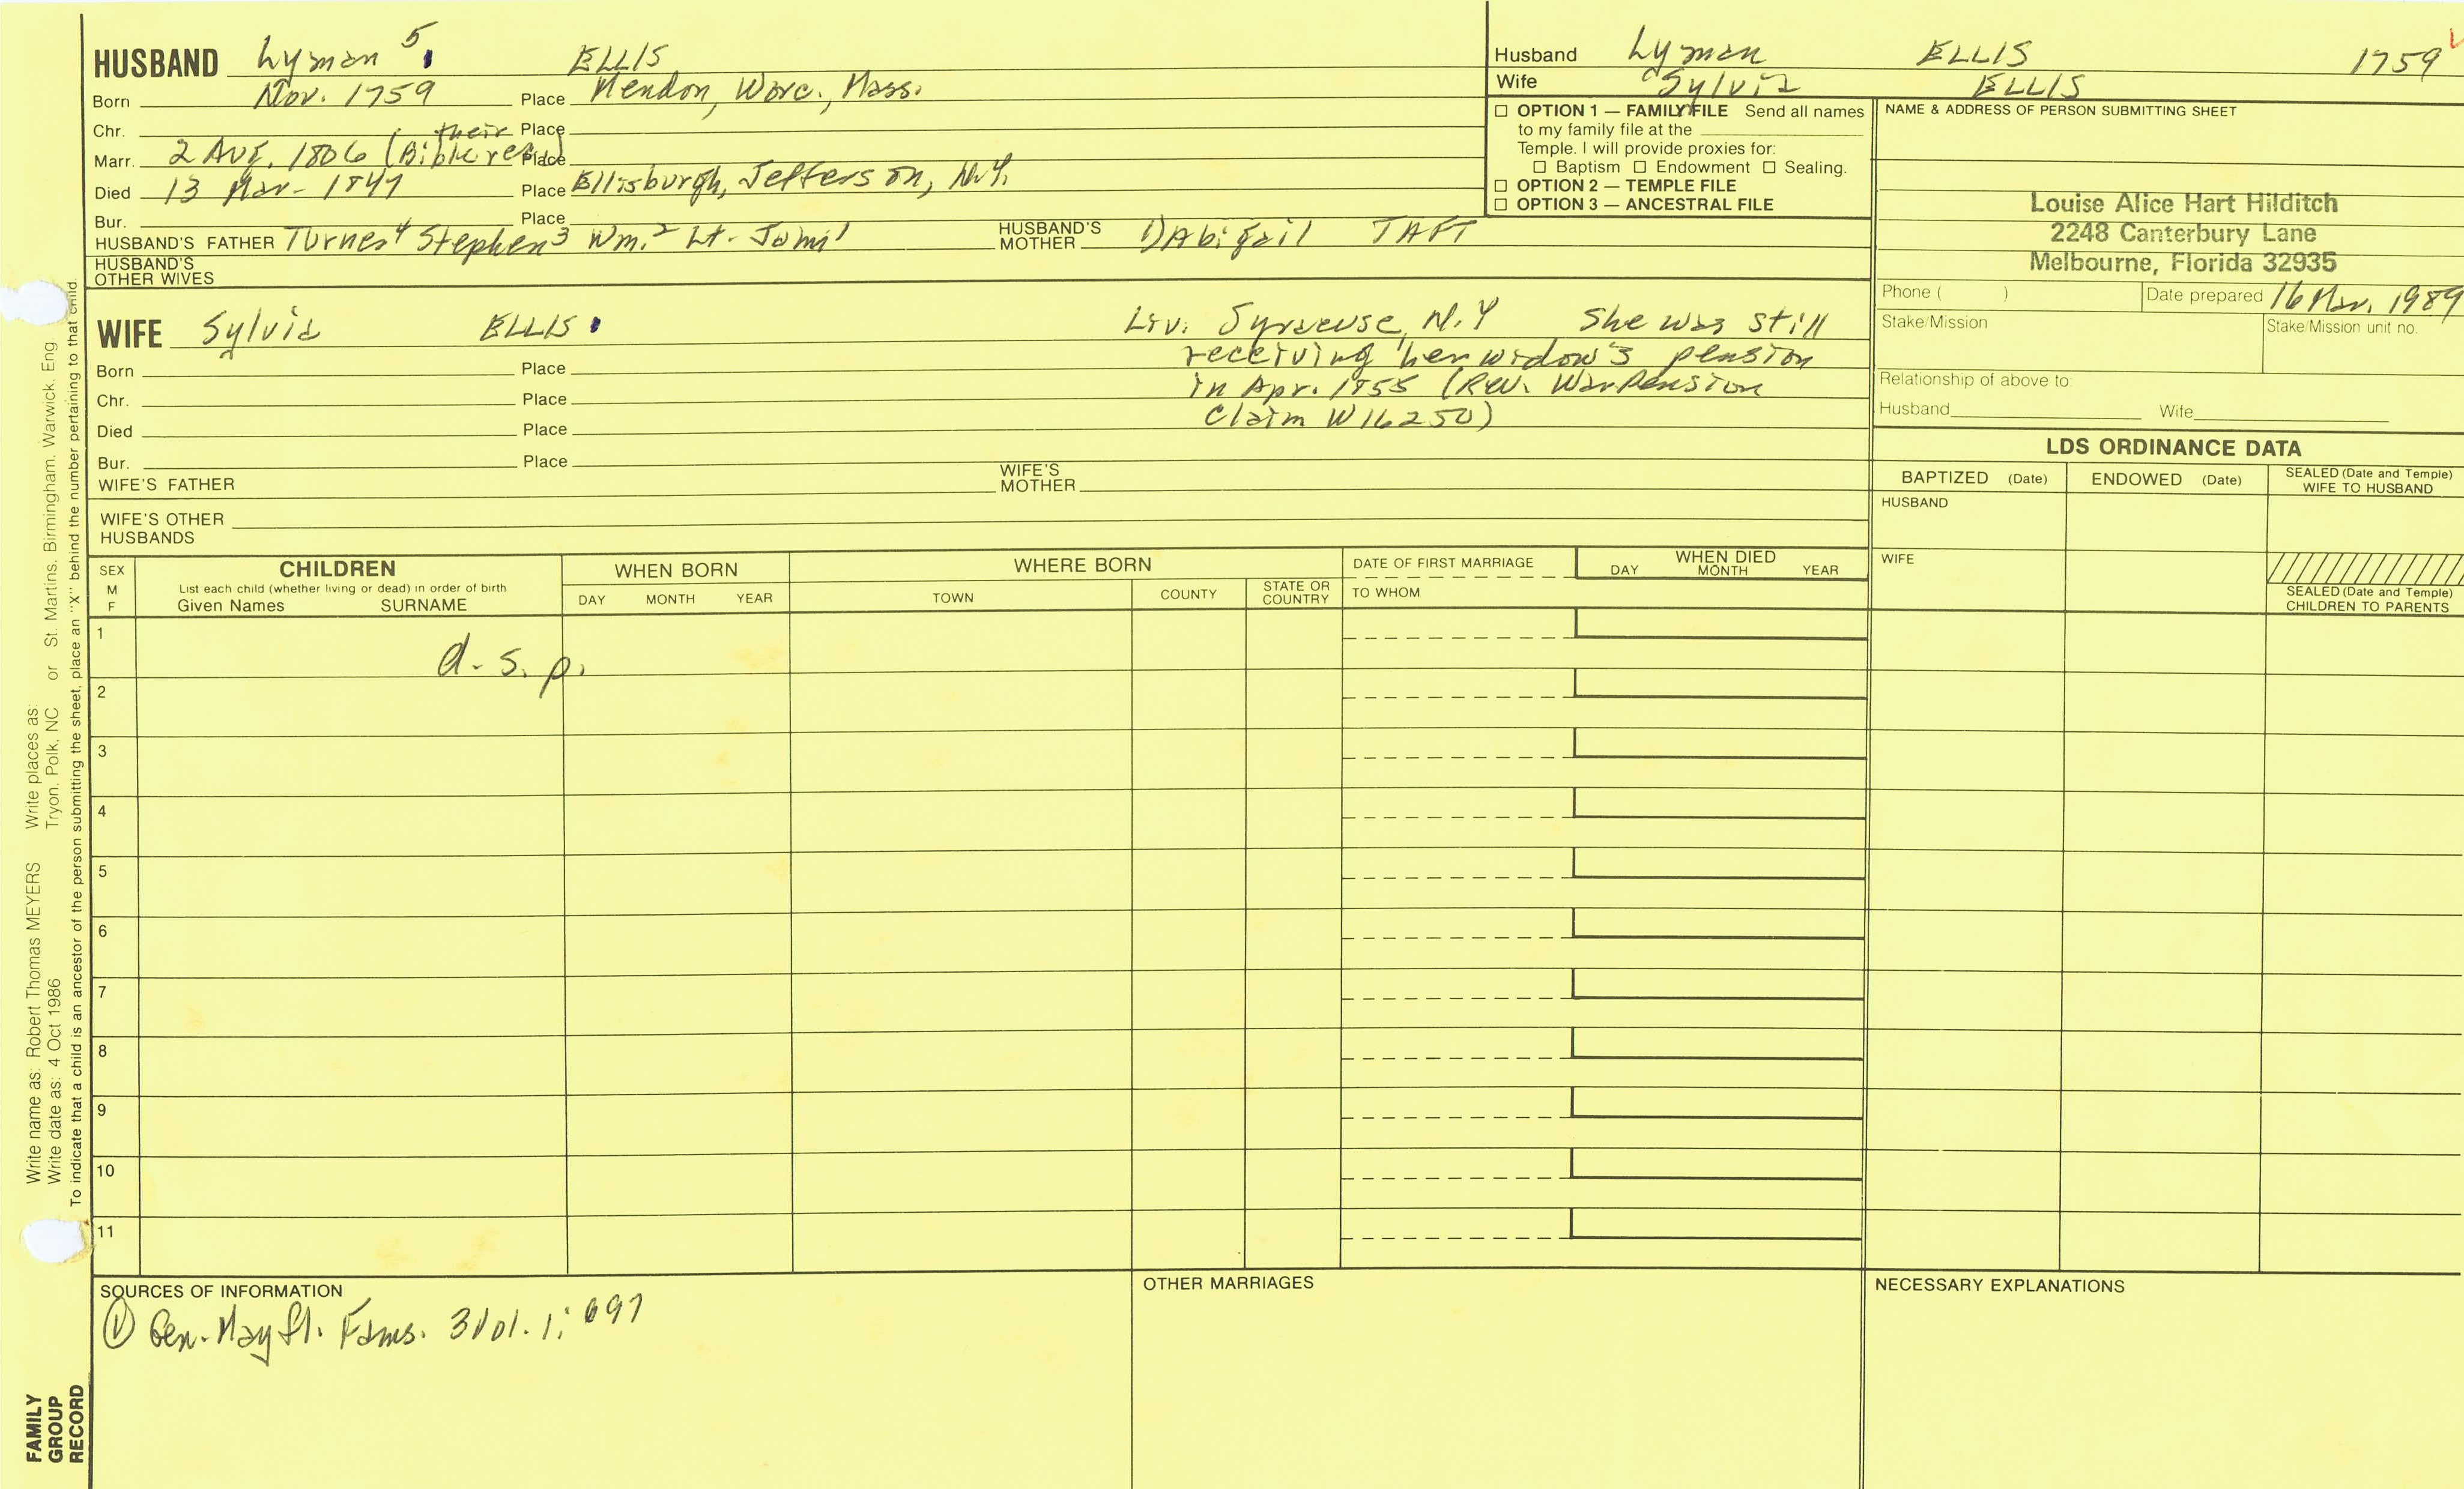 HUSBAND Lyman 5 ELLIS
Born Nov. 1759 Place Mendon, Worc., Mass.
Chr. Place
Marr. 2 Aug. 1806 (their Bible rec.) Place
Died 13 Mar. 1847 Place Ellisburgh, Jefferson, N.Y.
Bur. Place
HUSBAND'S FATHER Turner⁴ Stephen³ Wm.² Lt. John¹ HUSBAND'S MOTHER 1) Abigail TAFT
HUSBAND'S OTHER WIVES
Husband Lyman ELLIS 1759
Wife Sylvia ELLIS
☐ OPTION 1 — FAMILY FILE Send all names
to my family file at the
Temple. I will provide proxies for:
☐ Baptism ☐ Endowment ☐ Sealing.
☐ OPTION 2 — TEMPLE FILE
☐ OPTION 3 — ANCESTRAL FILE
NAME & ADDRESS OF PERSON SUBMITTING SHEET
Louise Alice Hart Hilditch
2248 Canterbury Lane
Melbourne, Florida 32935
Phone ( ) Date prepared 16 Mar. 1989
Stake/Mission Stake/Mission unit no.
Relationship of above to:
Husband Wife
WIFE Sylvia ELLIS
Liv. Syracuse, N.Y She was still
receiving her widow's pension
in Apr. 1855 (Rev. War Pension
Claim W16250)
Born Place
Chr. Place
Died Place
Bur. Place
WIFE'S FATHER WIFE'S MOTHER
WIFE'S OTHER
HUSBANDS
LDS ORDINANCE DATA
BAPTIZED (Date) ENDOWED (Date) SEALED (Date and Temple) WIFE TO HUSBAND
HUSBAND
WIFE
SEALED (Date and Temple)
CHILDREN TO PARENTS
SEX M F CHILDREN
List each child (whether living or dead) in order of birth
Given Names SURNAME
WHEN BORN
DAY MONTH YEAR
WHERE BORN
TOWN COUNTY STATE OR COUNTRY
DATE OF FIRST MARRIAGE
TO WHOM
WHEN DIED
DAY MONTH YEAR
1 d. s. p.
2
3
4
5
6
7
8
9
10
11
SOURCES OF INFORMATION
① Gen. Mayfl. Fams. 3 Vol. 1: 697
OTHER MARRIAGES
NECESSARY EXPLANATIONS
Write name as: Robert Thomas MEYERS Write places as:
Write date as: 4 Oct 1986 Tryon, Polk, NC or St. Martins, Birmingham, Warwick, Eng
To indicate that a child is an ancestor of the person submitting the sheet, place an "X" behind the number pertaining to that child.
FAMILY
GROUP
RECORD